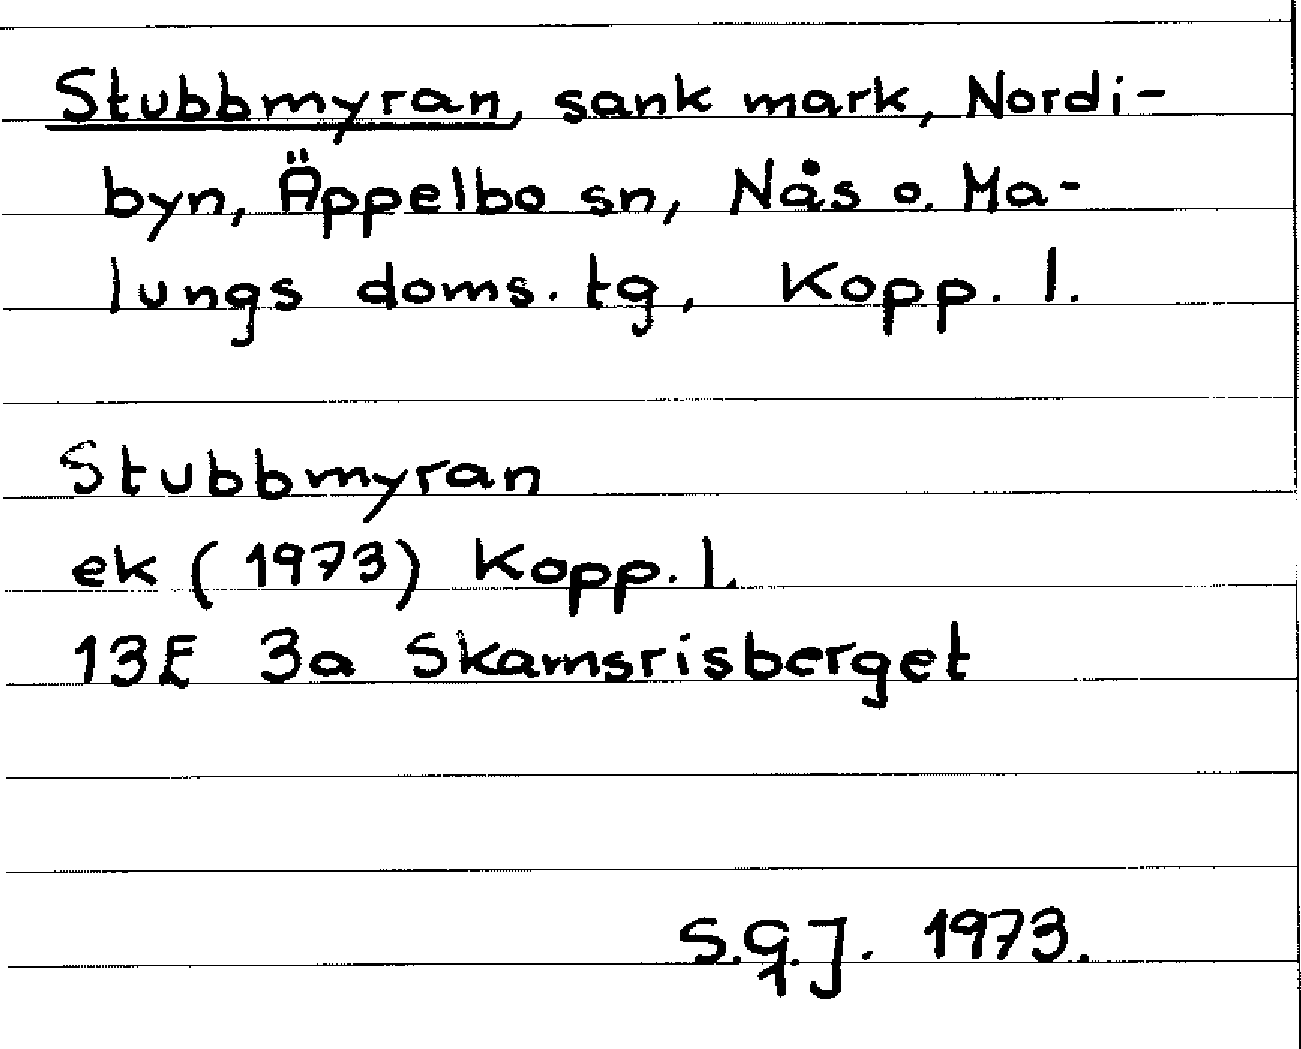 Stubbmyran, sank mark, Nordi-
byn, Äppelbo sn, Nås o. Ma-
lungs doms. tg, Kopp. l.
Stubbmyran
ek (1973) Kopp. l.
13E 3a Skamsrisberget
S.G.J. 1973.